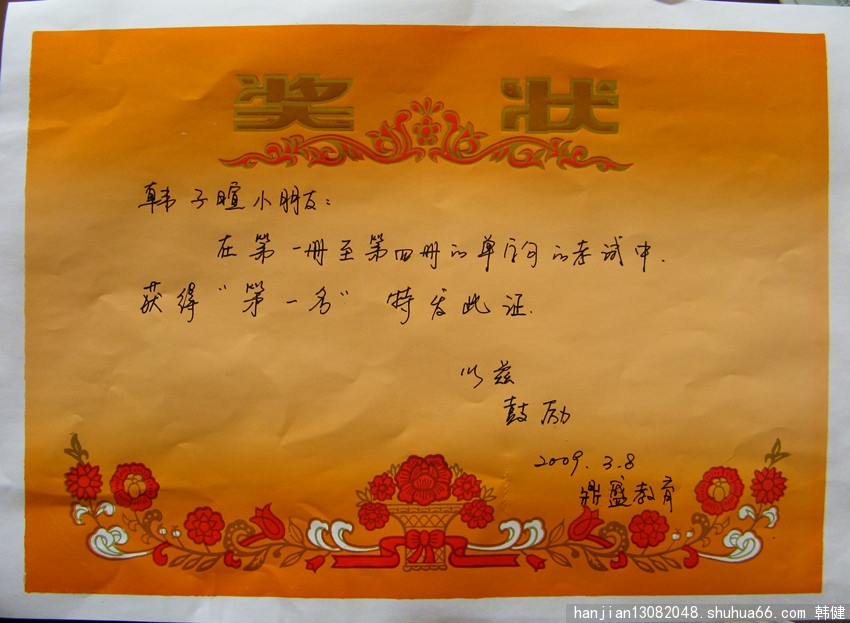 奖状
韩子暄小朋友：
在第一册至第四册的单词的考试中.
获得“第一名” 特发此证.
以兹
鼓励
2009.3.8
鼎盛教育
hanjian13082048.shuhua66.com 韩健